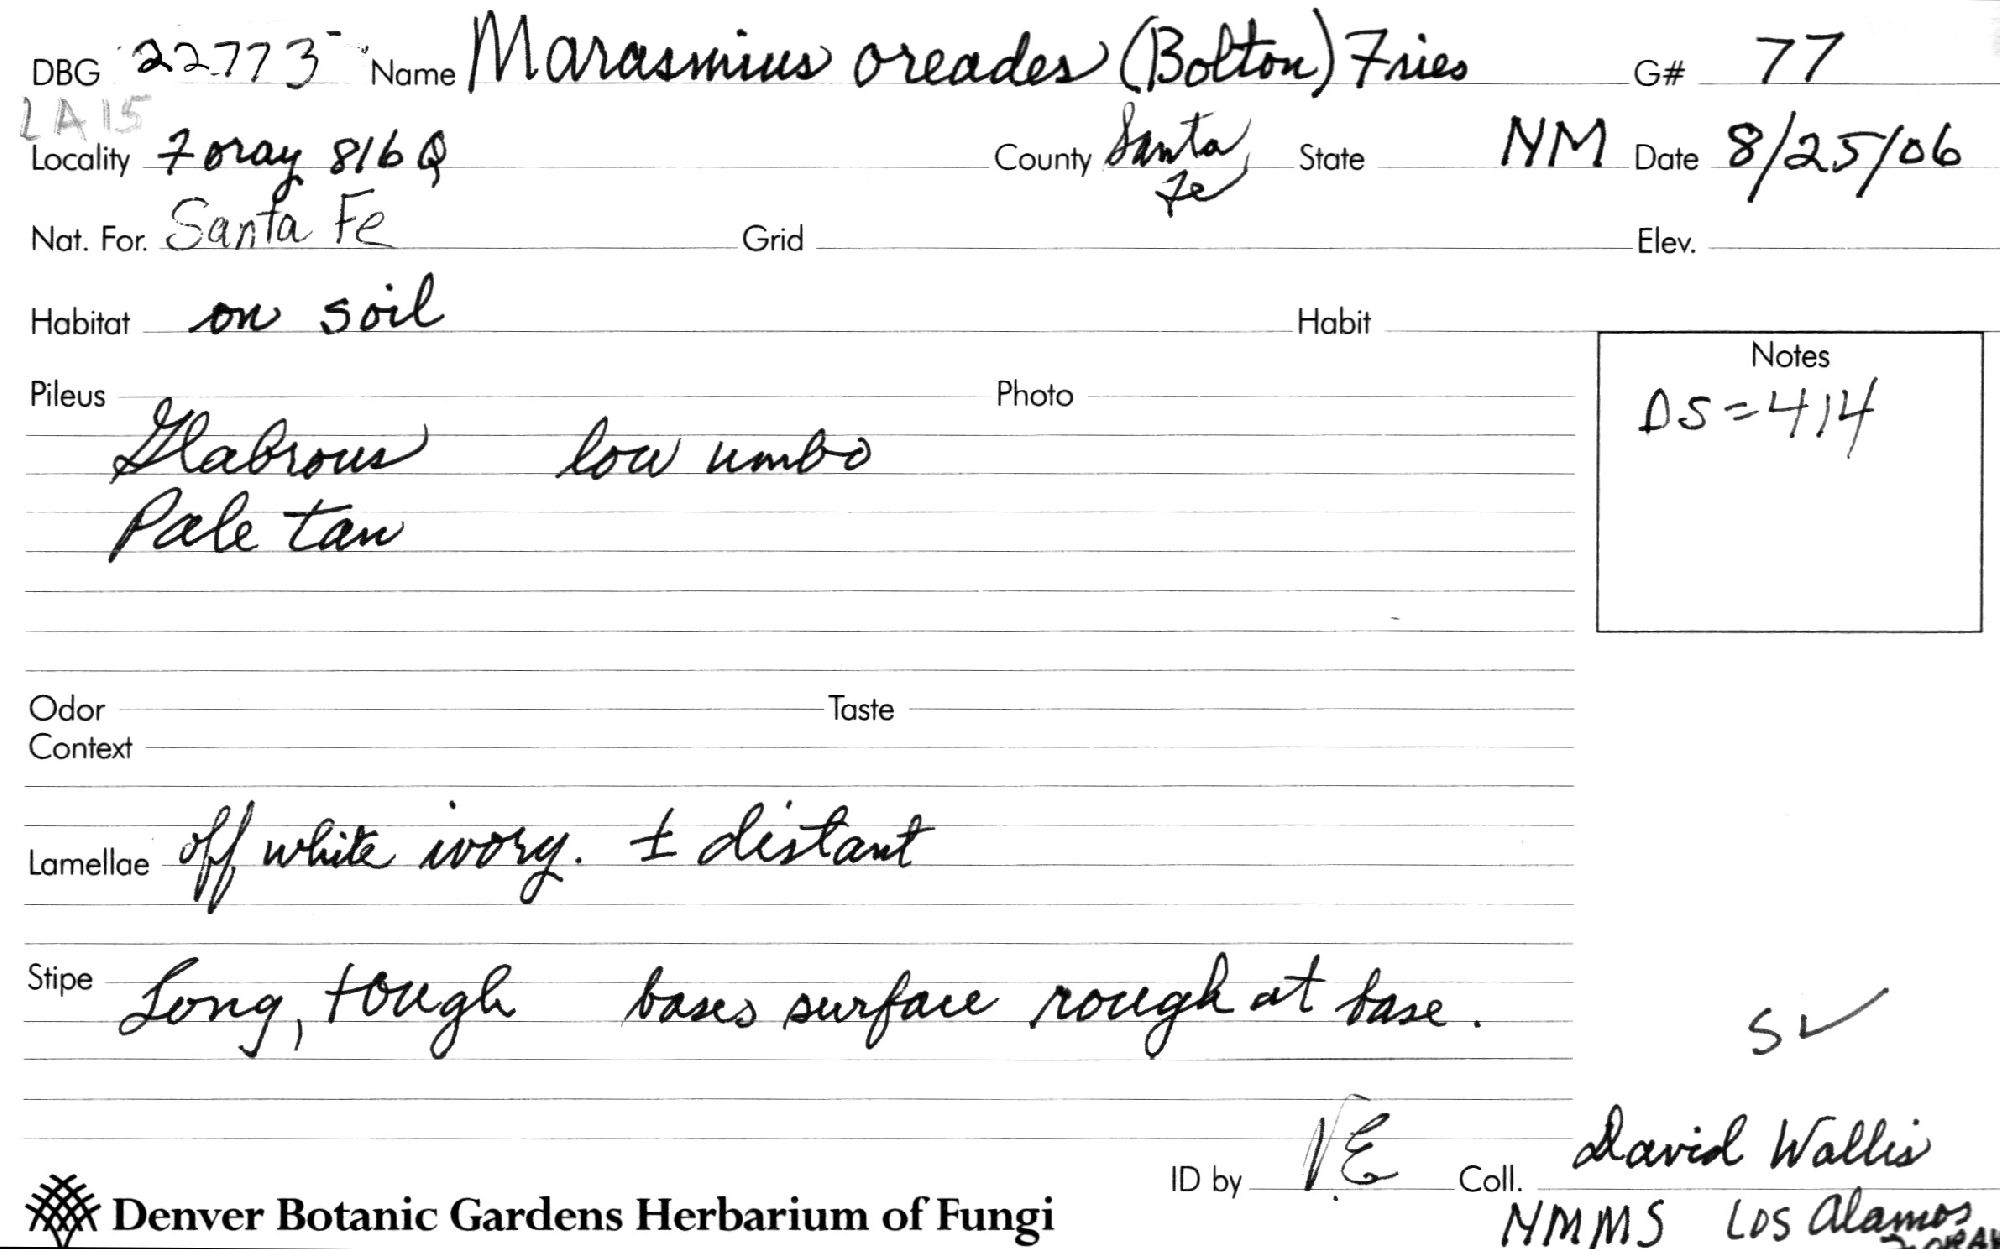 DBG 22773 Name Marasmius oreades (Bolton) Fries G# 77
LA15
Locality Foray 816Q County Santa Fe State NM Date 8/25/06
Nat. For. Santa Fe Grid Elev.
Habitat on soil Habit
Pileus Photo Notes
DS=414
Glabrous low umbo
Pale tan
Odor Taste
Context
Lamellae off white ivory. ± distant
Stipe Long, tough bases surface rough at base.
S✓
ID by VE Coll. David Wallis
Denver Botanic Gardens Herbarium of Fungi NMMS Los Alamos